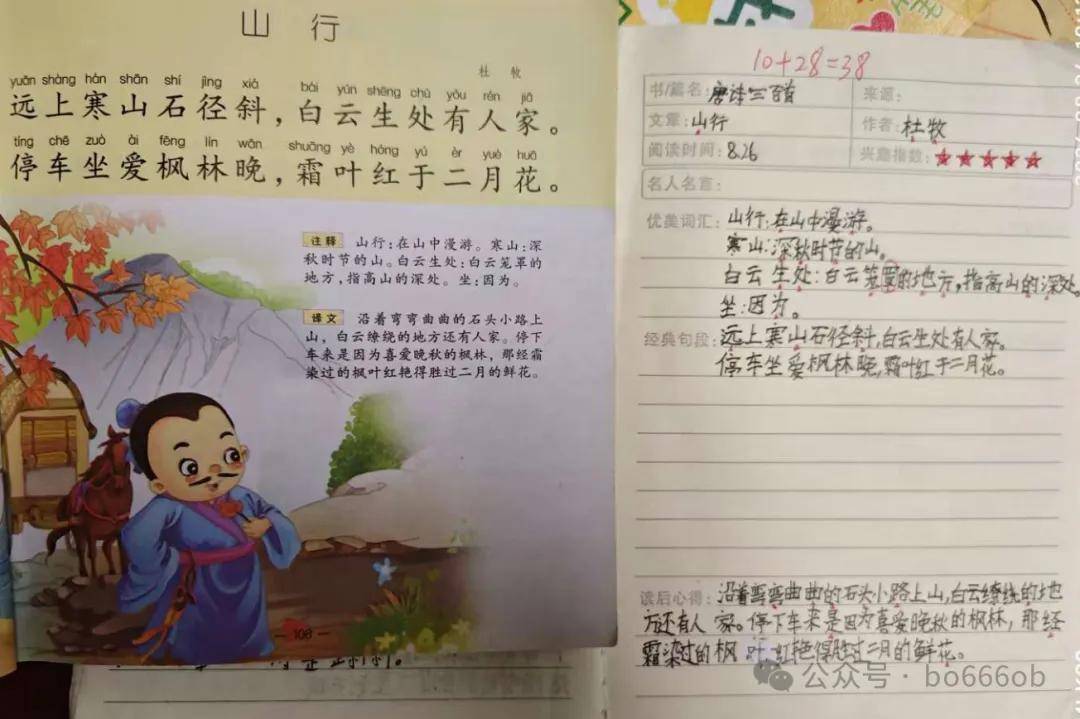 山行
杜牧
yuǎn shàng hán shān shí jìng xiá bái yún shēng chù yǒu rén jiā
远上寒山石径斜，白云生处有人家。
tíng chē zuò ài fēng lín wǎn shuāng yè hóng yú èr yuè huā
停车坐爱枫林晚，霜叶红于二月花。
注释 山行：在山中漫游。寒山：深
秋时节的山。白云生处：白云笼罩的
地方，指高山的深处。坐：因为。
译文 沿着弯弯曲曲的石头小路上
山，白云缭绕的地方还有人家。停下
车来是因为喜爱晚秋的枫林，那经霜
染过的枫叶红艳得胜过二月的鲜花。
108
10+28=38
书/篇名：唐诗三百首 来源：
文章：山行 作者：杜牧
阅读时间：8.26 兴趣指数：★★★★★
名人名言：
优美词汇：山行：在山中漫游。
寒山：深秋时节的山。
白云生处：白云笼罩的地方，指高山的深处。
坐：因为。
经典句段：远上寒山石径斜，白云生处有人家。
停车坐爱枫林晚，霜叶红于二月花。
读后心得：沿着弯弯曲曲的石头小路上山，白云缭绕的地
方还有人家。停下车来是因为喜爱晚秋的枫林，那经
霜染过的枫叶红艳得胜过二月的鲜花。
公众号·bo666ob